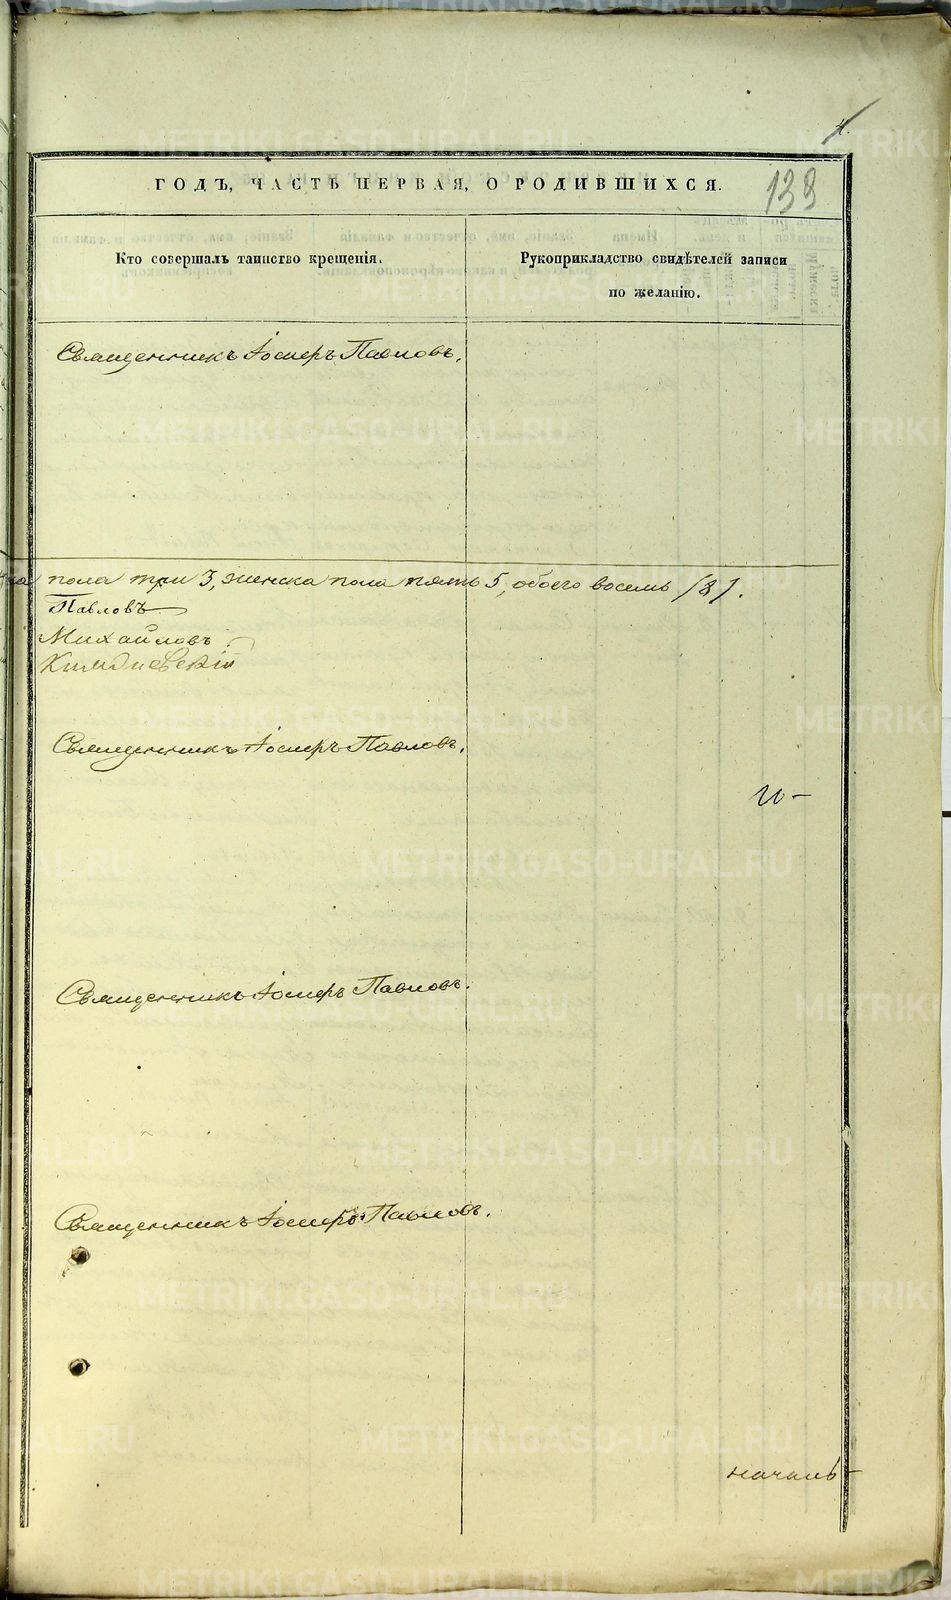 4.
ГОДЪ, ЧАСТЬ ПЕРВАЯ, О РОДИВШИХСЯ.
138
Кто совершалъ таинство крещенія.
Рукоприкладство свидѣтелей записи
по желанію.
Священникъ Іосифъ Павловъ.
пола три 3, женска пола пять 5, обоего восемь (8).
Павловъ
Михайловъ
Священникъ Іосифъ Павловъ.
Священникъ Іосифъ Павловъ.
Священникъ Іосифъ Павловъ.
началь-
METRIKI.GASO-URAL.RU